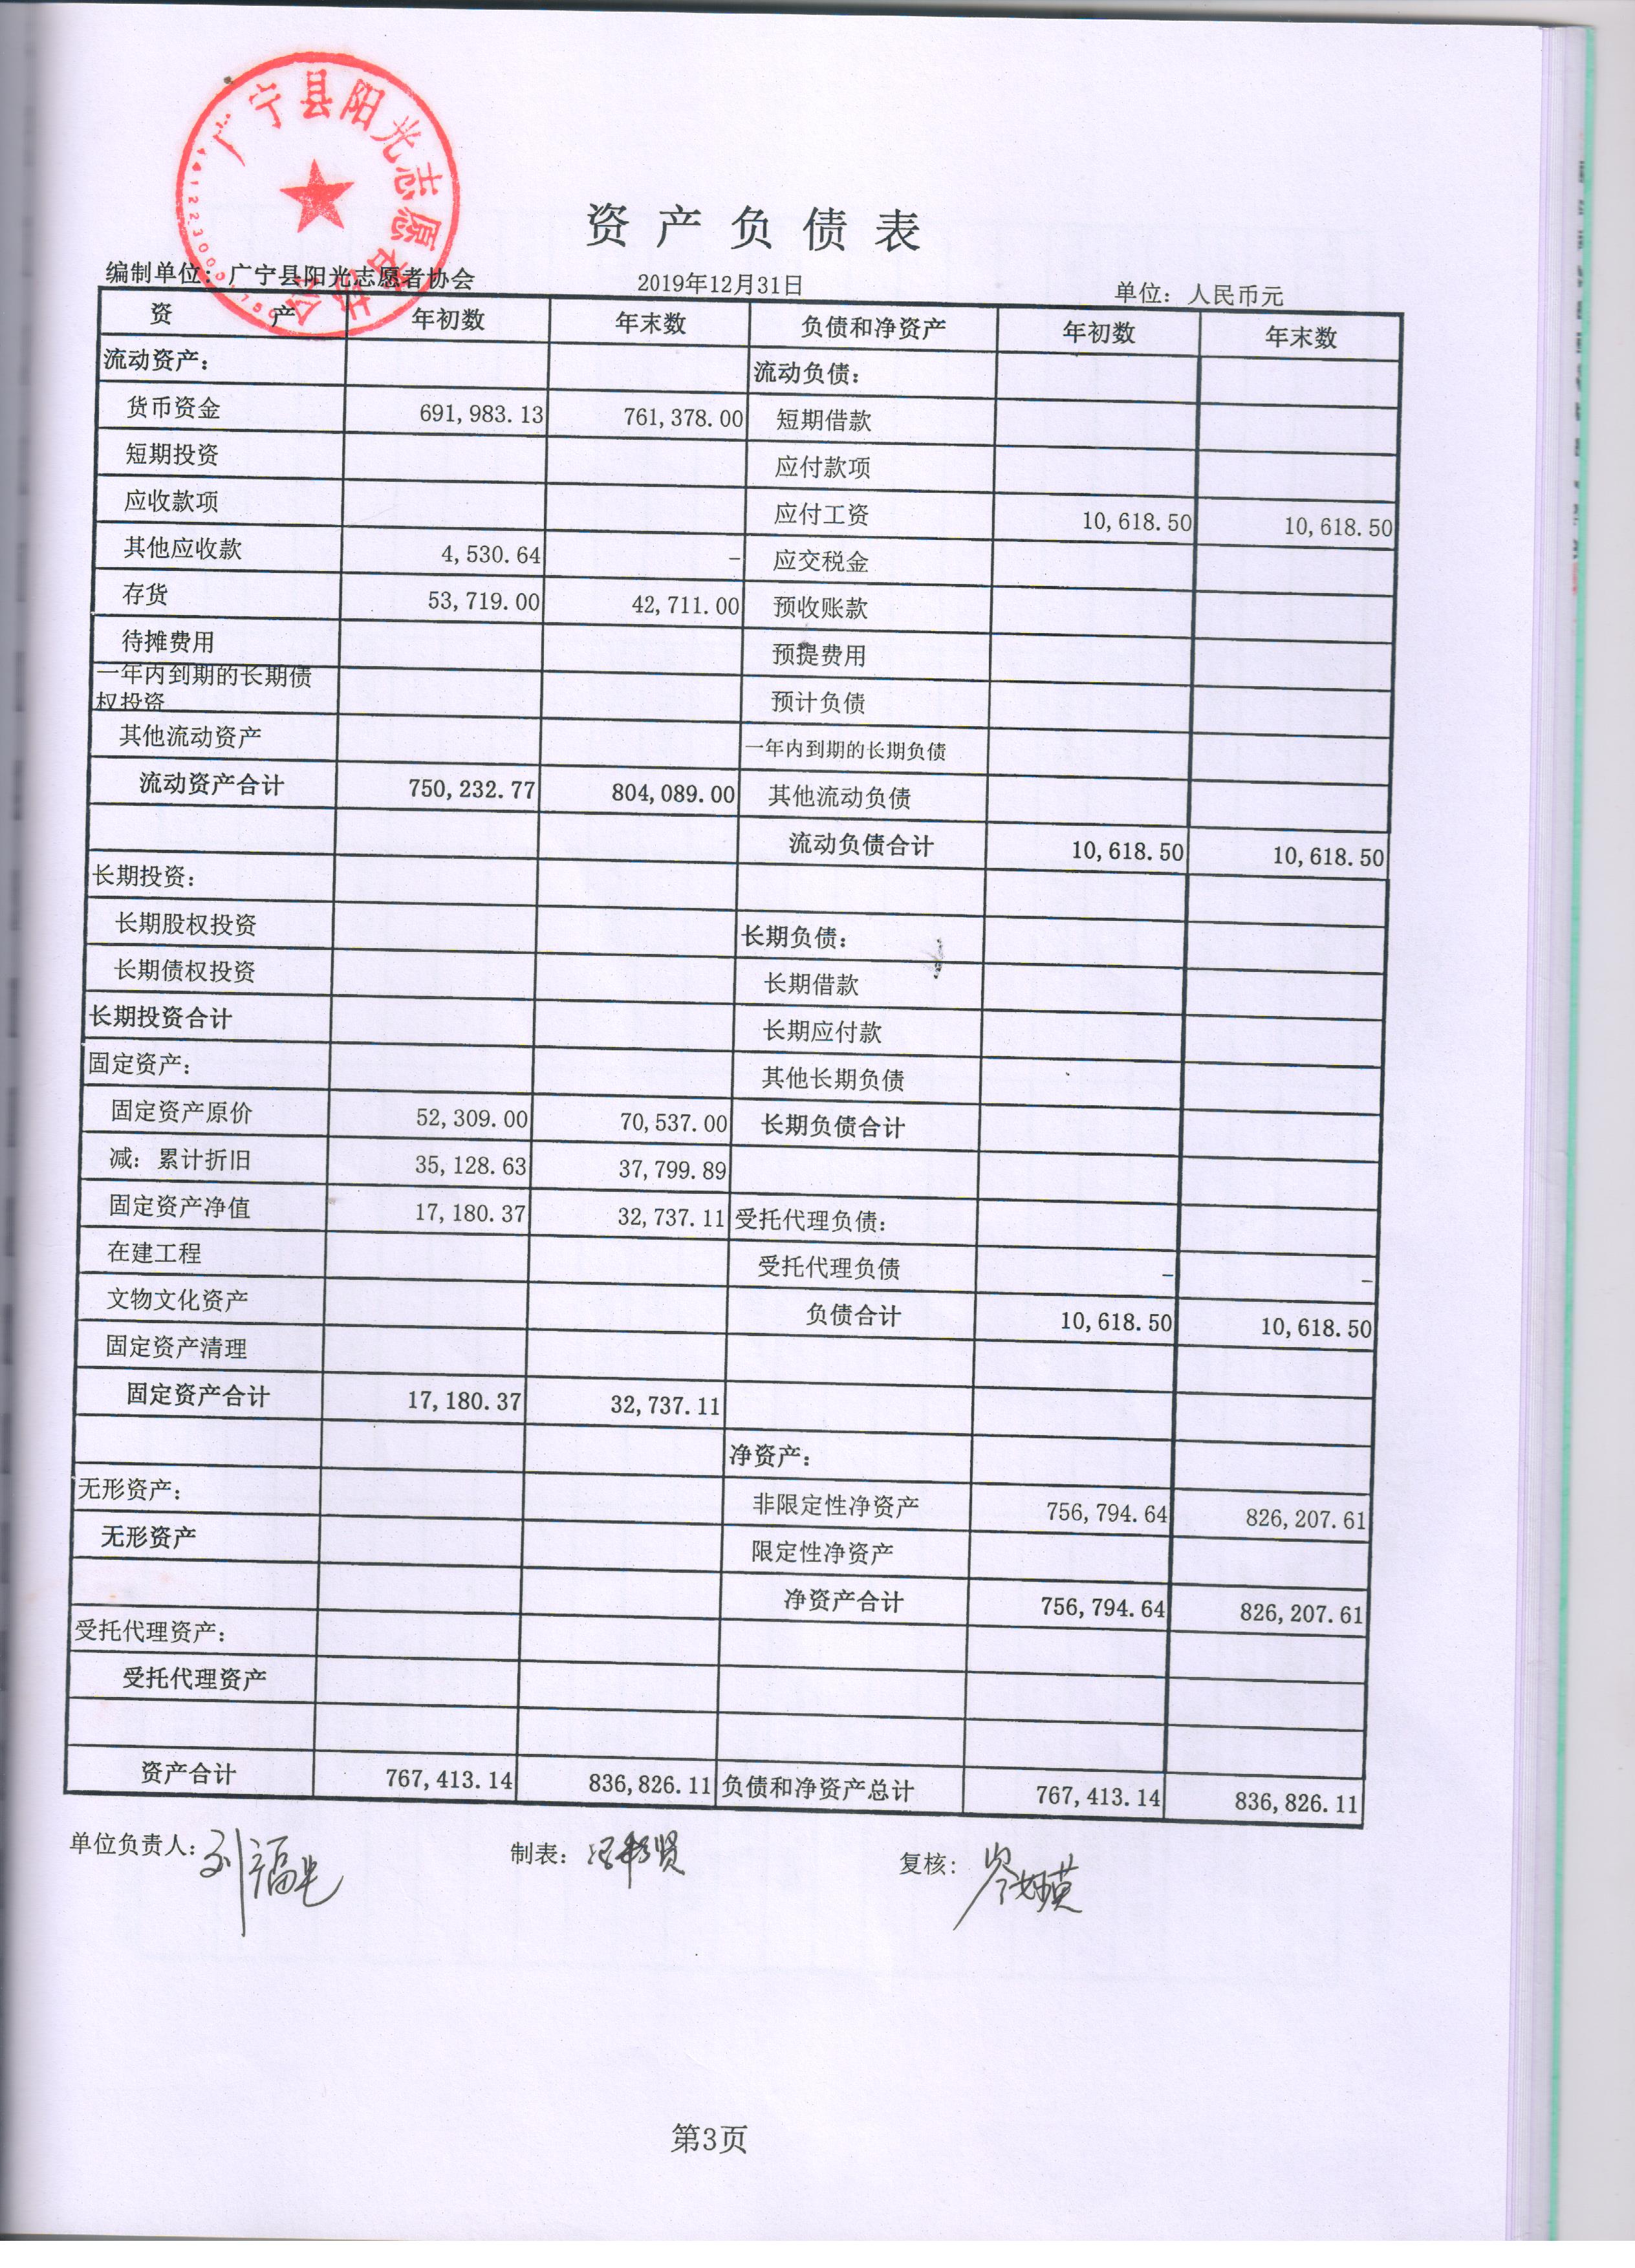 广宁县阳光志愿者协会
资产负债表
编制单位：广宁县阳光志愿者协会 2019年12月31日 单位：人民币元
资 产 年初数 年末数 负债和净资产 年初数 年末数
流动资产： 流动负债：
货币资金 691,983.13 761,378.00 短期借款
短期投资 应付款项
应收款项 应付工资 10,618.50 10,618.50
其他应收款 4,530.64 - 应交税金
存货 53,719.00 42,711.00 预收账款
待摊费用 预提费用
一年内到期的长期债
权投资 预计负债
其他流动资产 一年内到期的长期负债
流动资产合计 750,232.77 804,089.00 其他流动负债
流动负债合计 10,618.50 10,618.50
长期投资：
长期股权投资 长期负债：
长期债权投资 长期借款
长期投资合计 长期应付款
固定资产： 其他长期负债
固定资产原价 52,309.00 70,537.00 长期负债合计
减：累计折旧 35,128.63 37,799.89
固定资产净值 17,180.37 32,737.11 受托代理负债：
在建工程 受托代理负债 - -
文物文化资产 负债合计 10,618.50 10,618.50
固定资产清理
固定资产合计 17,180.37 32,737.11
净资产：
无形资产： 非限定性净资产 756,794.64 826,207.61
无形资产 限定性净资产
净资产合计 756,794.64 826,207.61
受托代理资产：
受托代理资产
资产合计 767,413.14 836,826.11 负债和净资产总计 767,413.14 836,826.11
单位负责人： 制表： 复核：
第3页